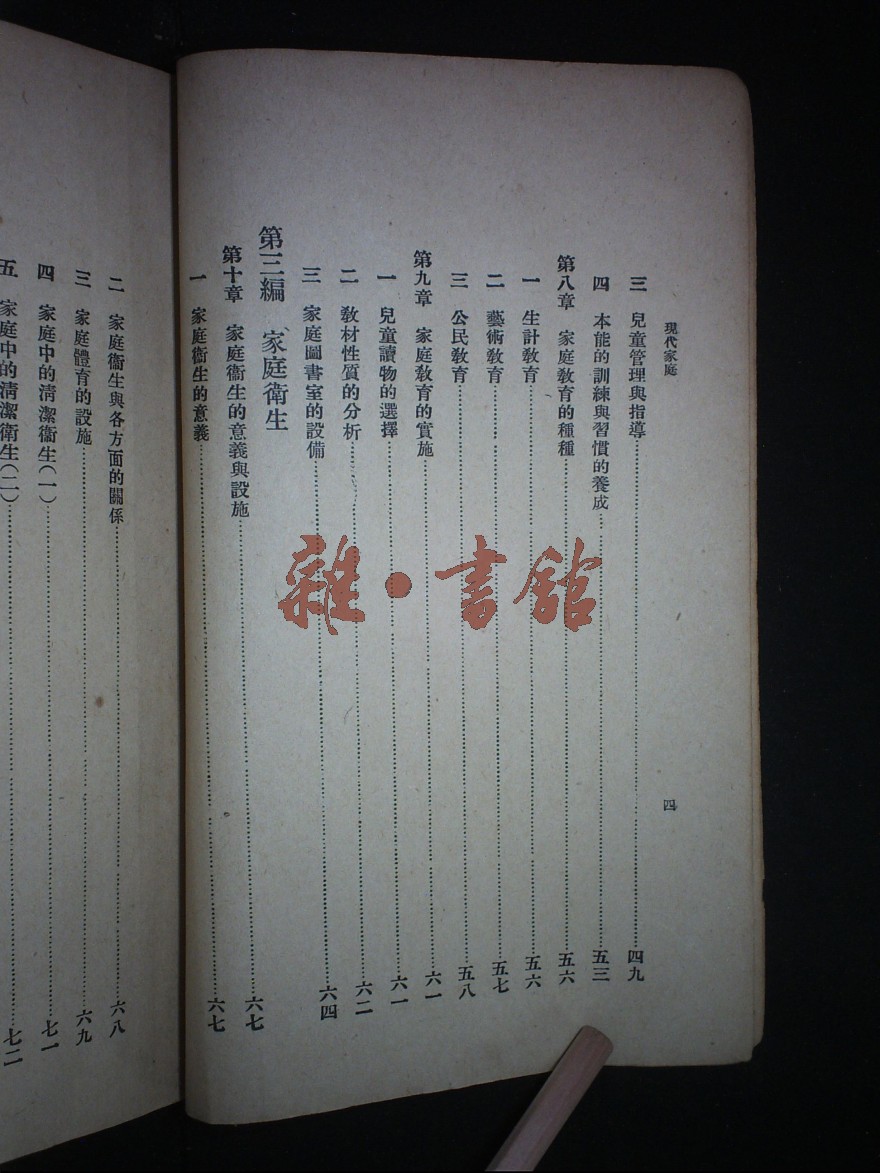 現代家庭
四
三 兒童管理與指導……四九
四 本能的訓練與習慣的養成……五三
第八章 家庭敎育的種種……五六
一 生計敎育……五六
二 藝術敎育……五七
三 公民敎育……五八
第九章 家庭敎育的實施……六一
一 兒童讀物的選擇……六一
二 敎材性質的分析……六二
三 家庭圖書室的設備……六四
第三編 家庭衛生
第十章 家庭衞生的意義與設施……六七
一 家庭衞生的意義……六七
二 家庭衞生與各方面的關係……六八
三 家庭體育的設施……六九
四 家庭中的淸潔衞生(一)……七一
五 家庭中的淸潔衞生(二)……七二
雜·書館